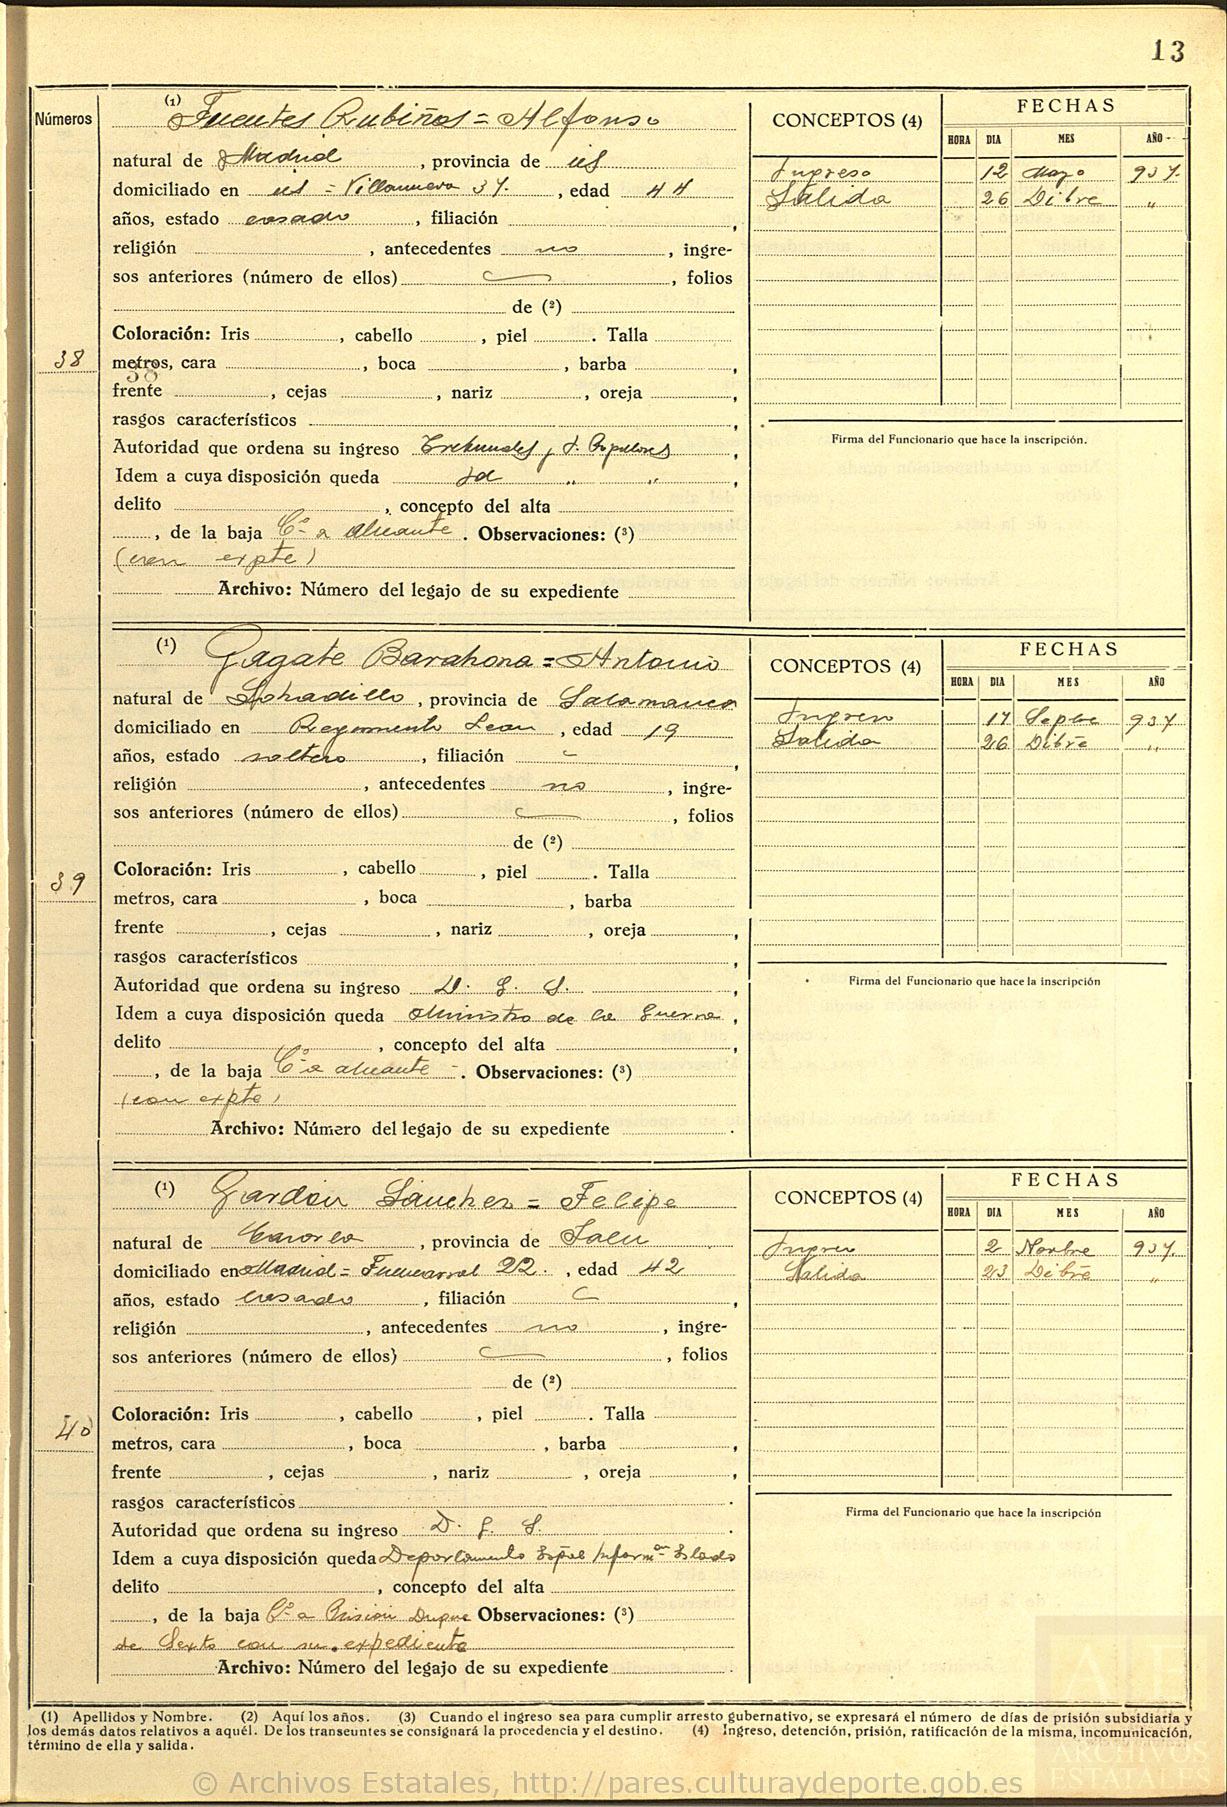 13
Números
(1) Fuentes Rubiños = Alfonso
natural de Madrid, provincia de id
domiciliado en id = Villanueva 37., edad 44
años, estado casado, filiación
religión, antecedentes no, ingre-
sos anteriores (número de ellos), folios
de (2)
Coloración: Iris, cabello, piel. Talla
38
metros, cara, boca, barba
38
frente, cejas, nariz, oreja
rasgos característicos
Autoridad que ordena su ingreso Tribunales y J. Populares
Idem a cuya disposición queda Id " "
delito, concepto del alta
, de la baja Cº a Alicante. Observaciones: (3)
(con expte)
Archivo: Número del legajo de su expediente
CONCEPTOS (4) FECHAS
HORA DIA MES AÑO
Ingreso 12 Mayo 937.
Salida 26 Dibre "
Firma del Funcionario que hace la inscripción.
(1) Gagate Barahona = Antonio
natural de, provincia de Salamanca
domiciliado en Regimiento Leon, edad 19
años, estado soltero, filiación
religión, antecedentes no, ingre-
sos anteriores (número de ellos), folios
de (2)
Coloración: Iris, cabello, piel. Talla
39
metros, cara, boca, barba
frente, cejas, nariz, oreja,
rasgos característicos
Autoridad que ordena su ingreso D. G. S.
Idem a cuya disposición queda Ministro de la Guerra,
delito, concepto del alta
, de la baja Cº a Alicante. Observaciones: (3)
(con expte)
Archivo: Número del legajo de su expediente.
CONCEPTOS (4) FECHAS
HORA DIA MES AÑO
Ingreso 17 Sepbre 937
Salida 26 Dibre "
Firma del Funcionario que hace la inscripción
(1) Gardón Sánchez = Felipe
natural de Cazorla, provincia de Jaen
domiciliado en Madrid = Fuencarral 22., edad 42
años, estado casado, filiación
religión, antecedentes no, ingre-
sos anteriores (número de ellos), folios
de (2)
Coloración: Iris, cabello, piel. Talla
40
metros, cara, boca, barba
frente, cejas, nariz, oreja
rasgos característicos
Autoridad que ordena su ingreso D. G. S.
Idem a cuya disposición queda Departamento Espal Informon Estado
delito, concepto del alta
, de la baja Cº a Prision Duque Observaciones: (3)
de Sexto con su expediente
Archivo: Número del legajo de su expediente
CONCEPTOS (4) FECHAS
HORA DIA MES AÑO
Ingreso 2 Novbre 937.
Salida 23 Dibre "
Firma del Funcionario que hace la inscripción
(1) Apellidos y Nombre. (2) Aquí los años. (3) Cuando el ingreso sea para cumplir arresto gubernativo, se expresará el número de días de prisión subsidiaria y
los demás datos relativos a aquél. De los transeuntes se consignará la procedencia y el destino. (4) Ingreso, detención, prisión, ratificación de la misma, incomunicación,
término de ella y salida.
ARCHIVOS
ESTATALES
© Archivos Estatales, http://pares.culturaydeporte.gob.es